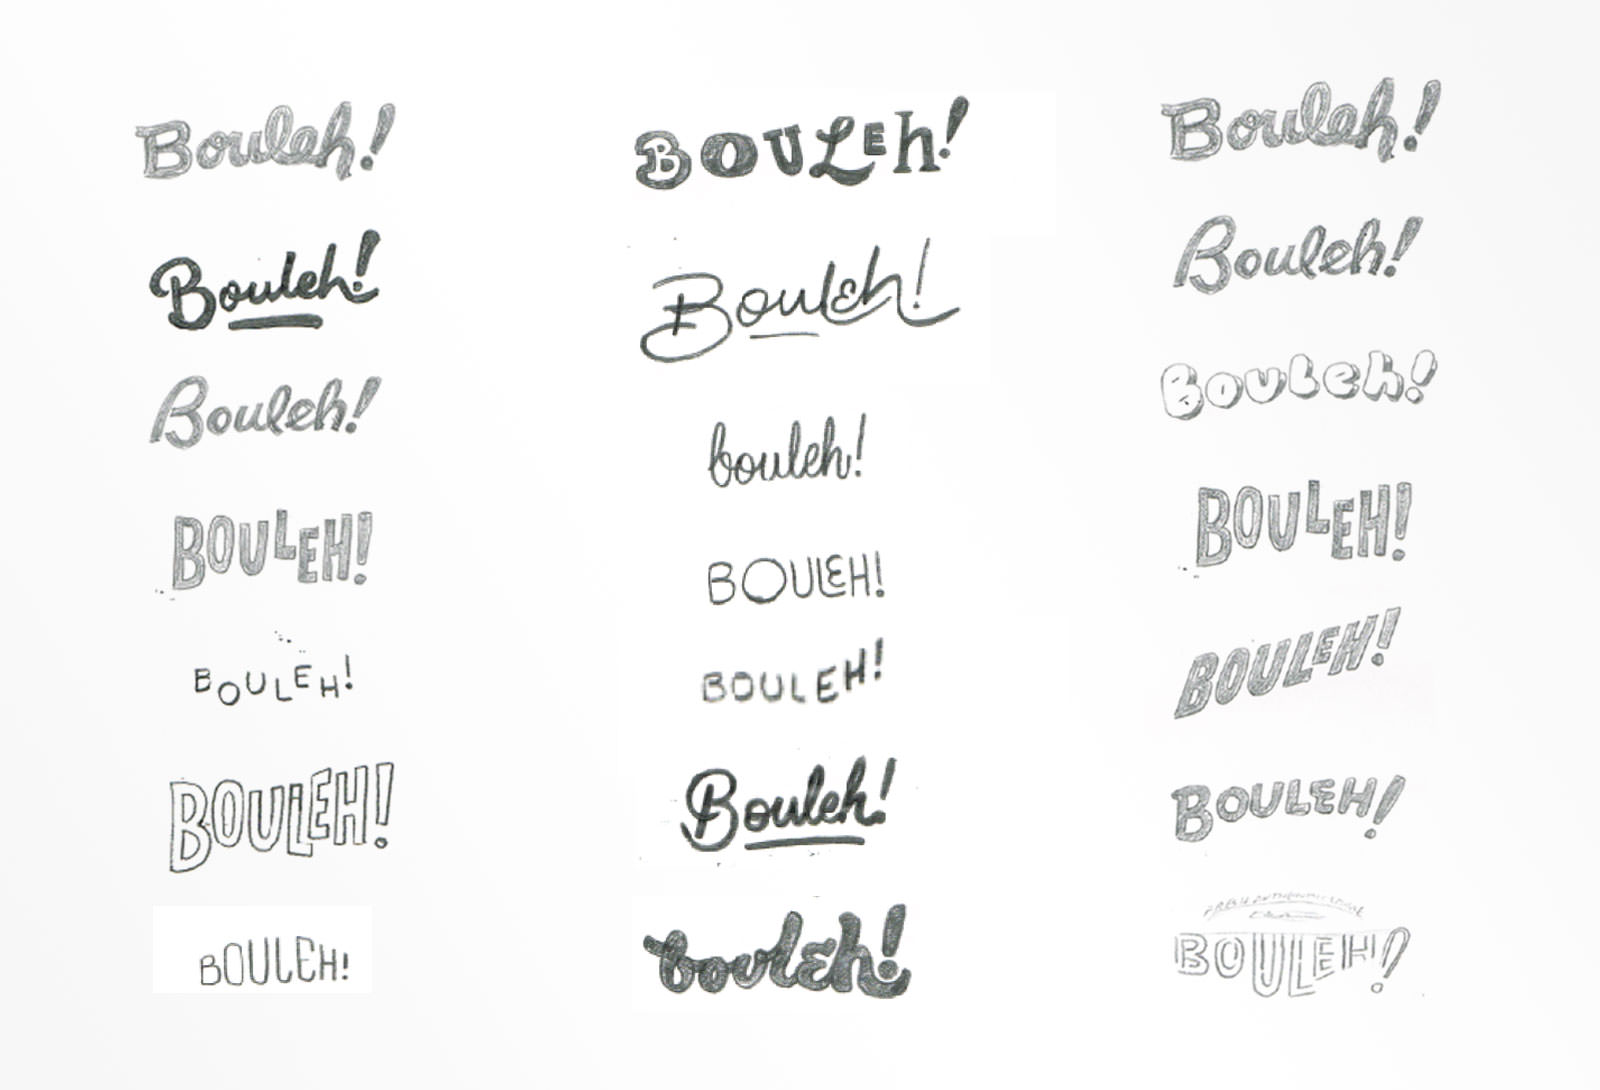 Bouleh!
Bouleh!
Bouleh!
BOULEH!
BOULEH!
BOULEH!
BOULEH!
BOULEh!
Bouleh!
bouleh!
BOULEH!
BOULEH!
Bouleh!
bouleh!
Bouleh!
Bouleh!
BouLeh!
BOULEH!
BOULEH!
BOULEH!
BOULEH!